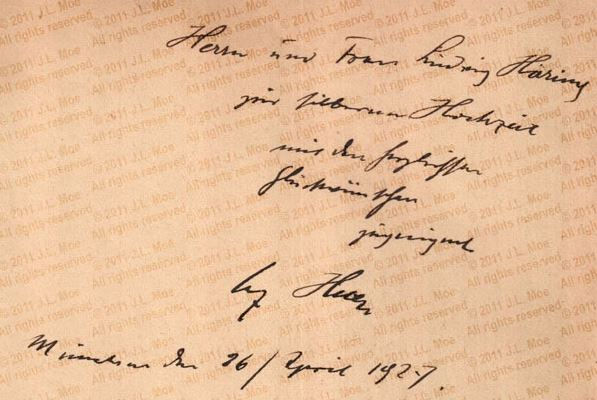 Herrn und Frau Ludwig Häring
zur silbernen Hochzeit
mit den herzlichsten
Glückwünschen
zugeeignet
München den 26/April 1927.
© 2011 J.L. Moe
All rights reserved